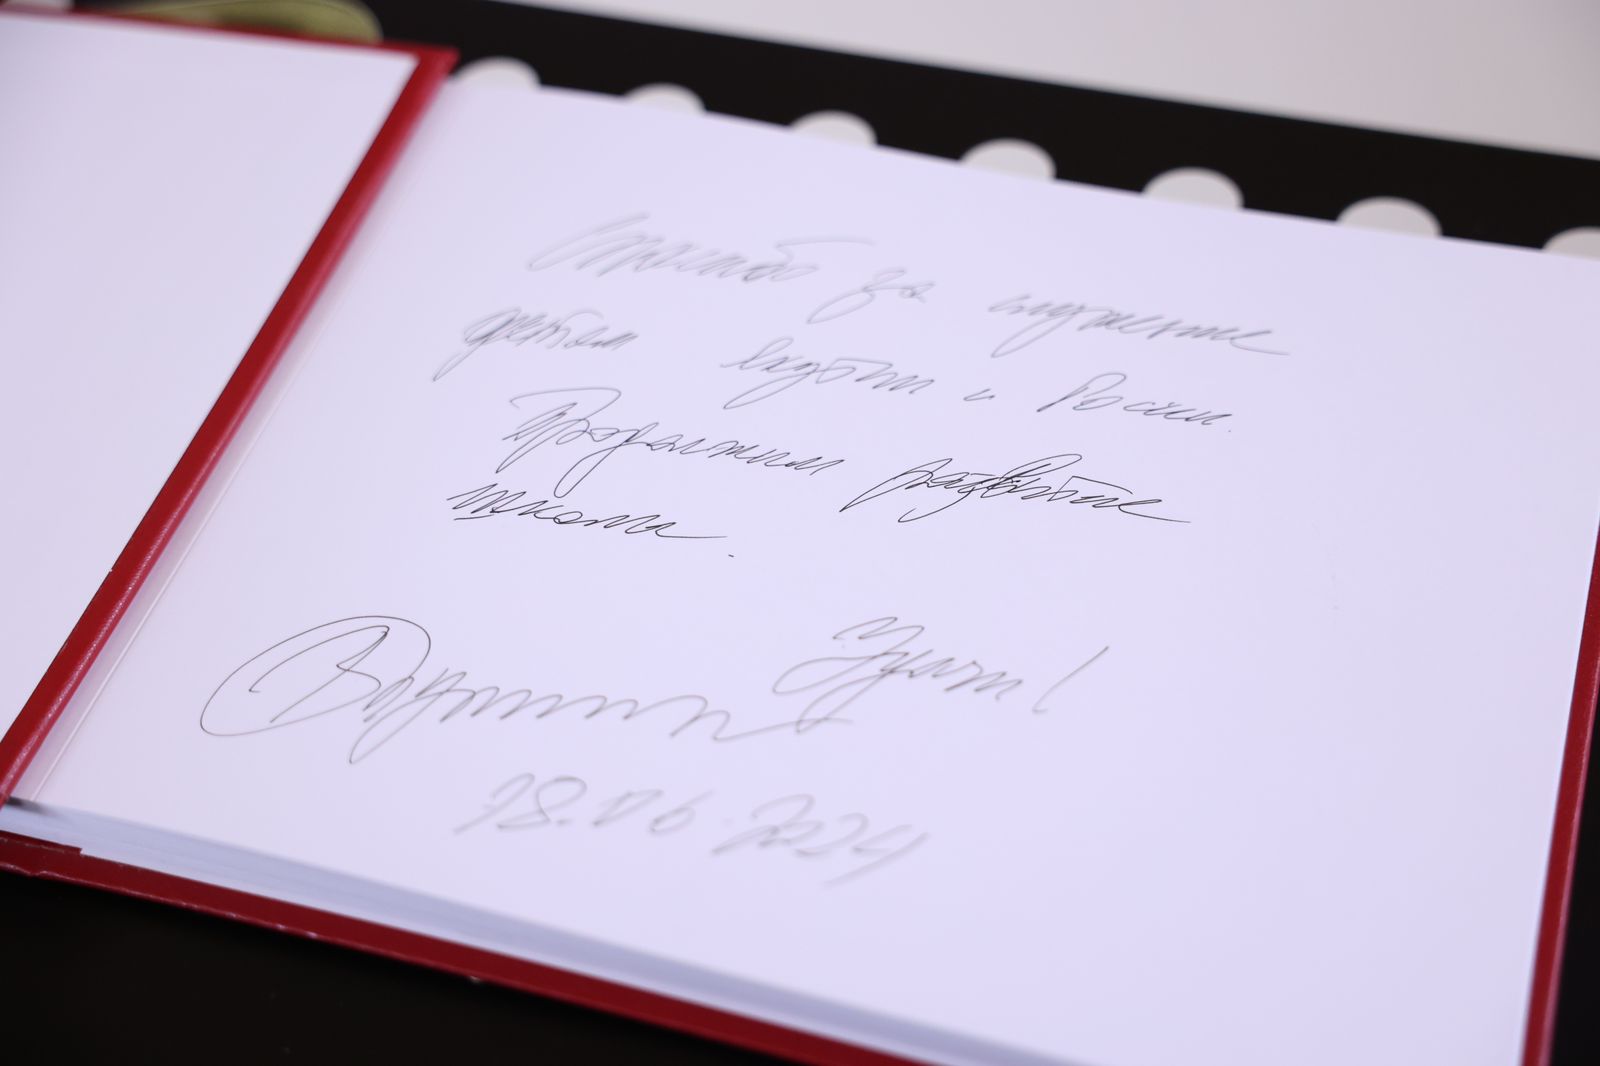 Спасибо за служение
детям Якутии и России.
Продолжим развитие
школы.
Удачи!
18.06.2024